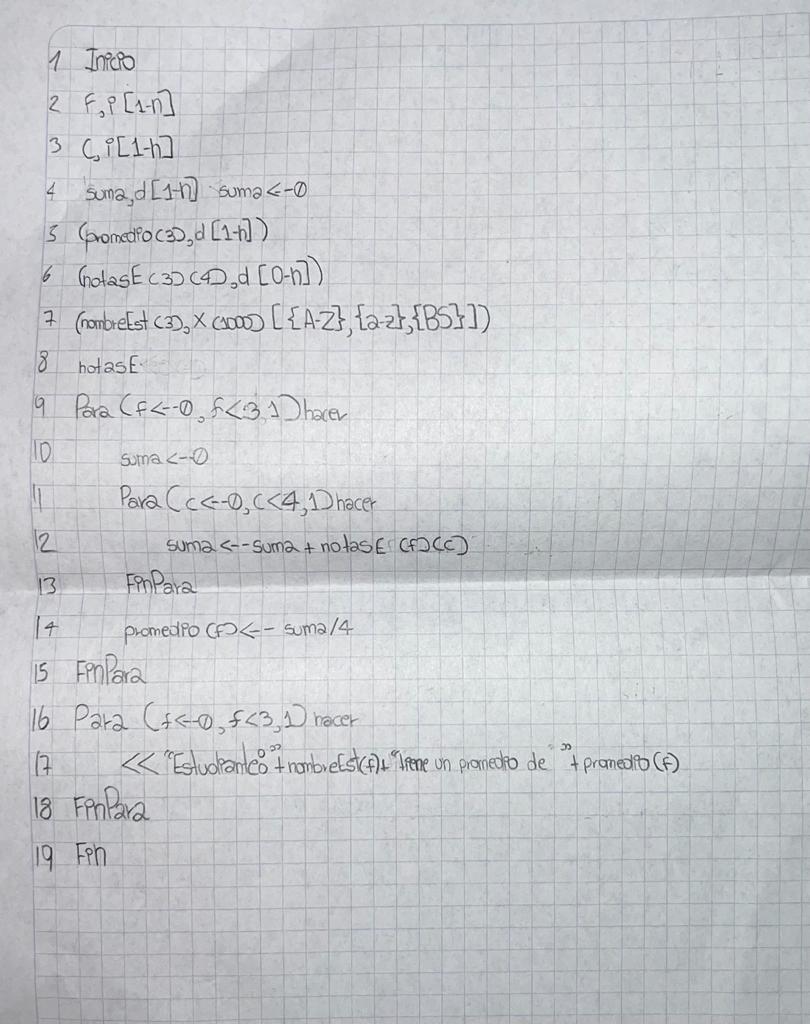 1 Inicio
2 F,i [1-n]
3 C,i[1-n]
4 suma,d[1-n] suma<-0
5 (promedio(3),d[1-n])
6 (notasE(3)(4),d[0-n])
7 (nombreEst(3),X(1000)[{A-Z},{a-z},{BS}])
8 notasE
9 Para (f<-0, f<3,1) hacer
10 suma<-0
11 Para (c<-0,c<4,1) hacer
12 suma<-suma+notasE(f)(c)
13 FinPara
14 promedio(f)<- suma/4
15 FinPara
16 Para (f<-0, f<3,1) hacer
17 << "Estudiante:"+nombreEst(f)+"Tiene un promedio de "+promedio(f)
18 FinPara
19 Fin